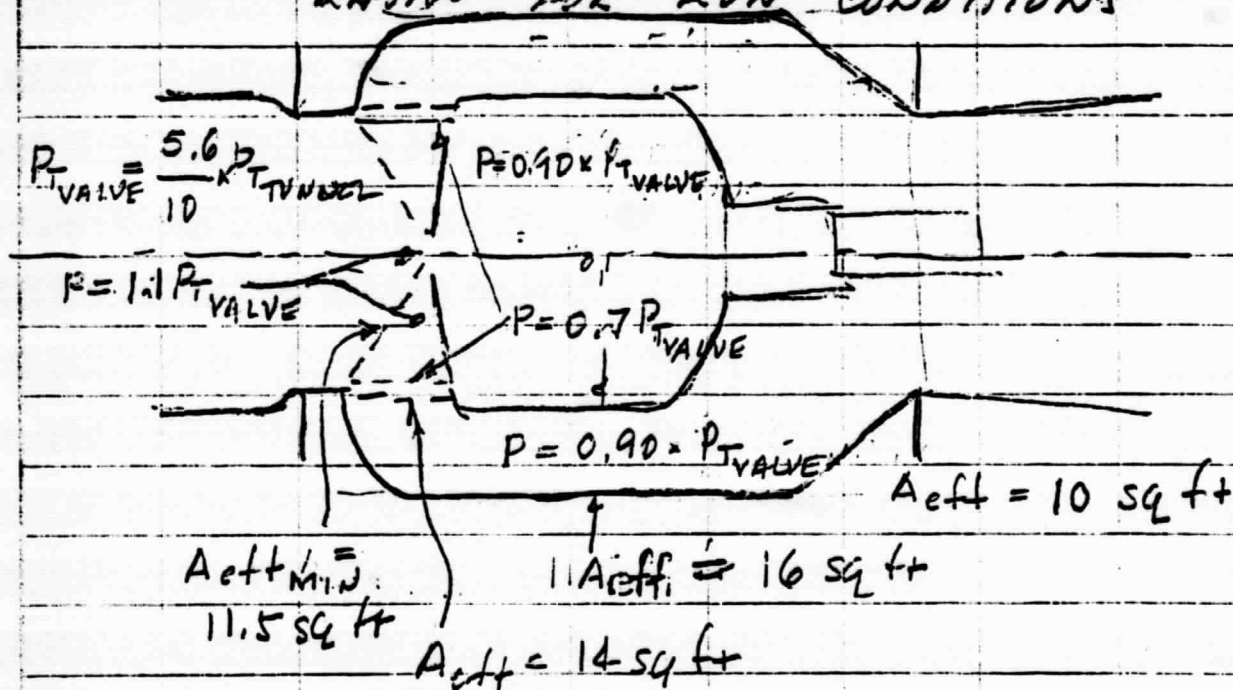 FOR RUN CONDITIONS
P_T VALVE = 5.6/10 x P_T TUNNEL
P=0.90 x P_T VALVE
P=1.1 P_T VALVE
P=0.7 P_T VALVE
P = 0.90 x P_T VALVE
A eff = 10 sq ft
A eff MIN. =
11.5 sq ft
A eff = 16 sq ft
A eff = 14 sq ft